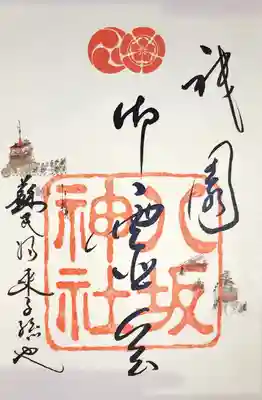 祇園
御霊会
八坂神社
蘇民将来子孫也